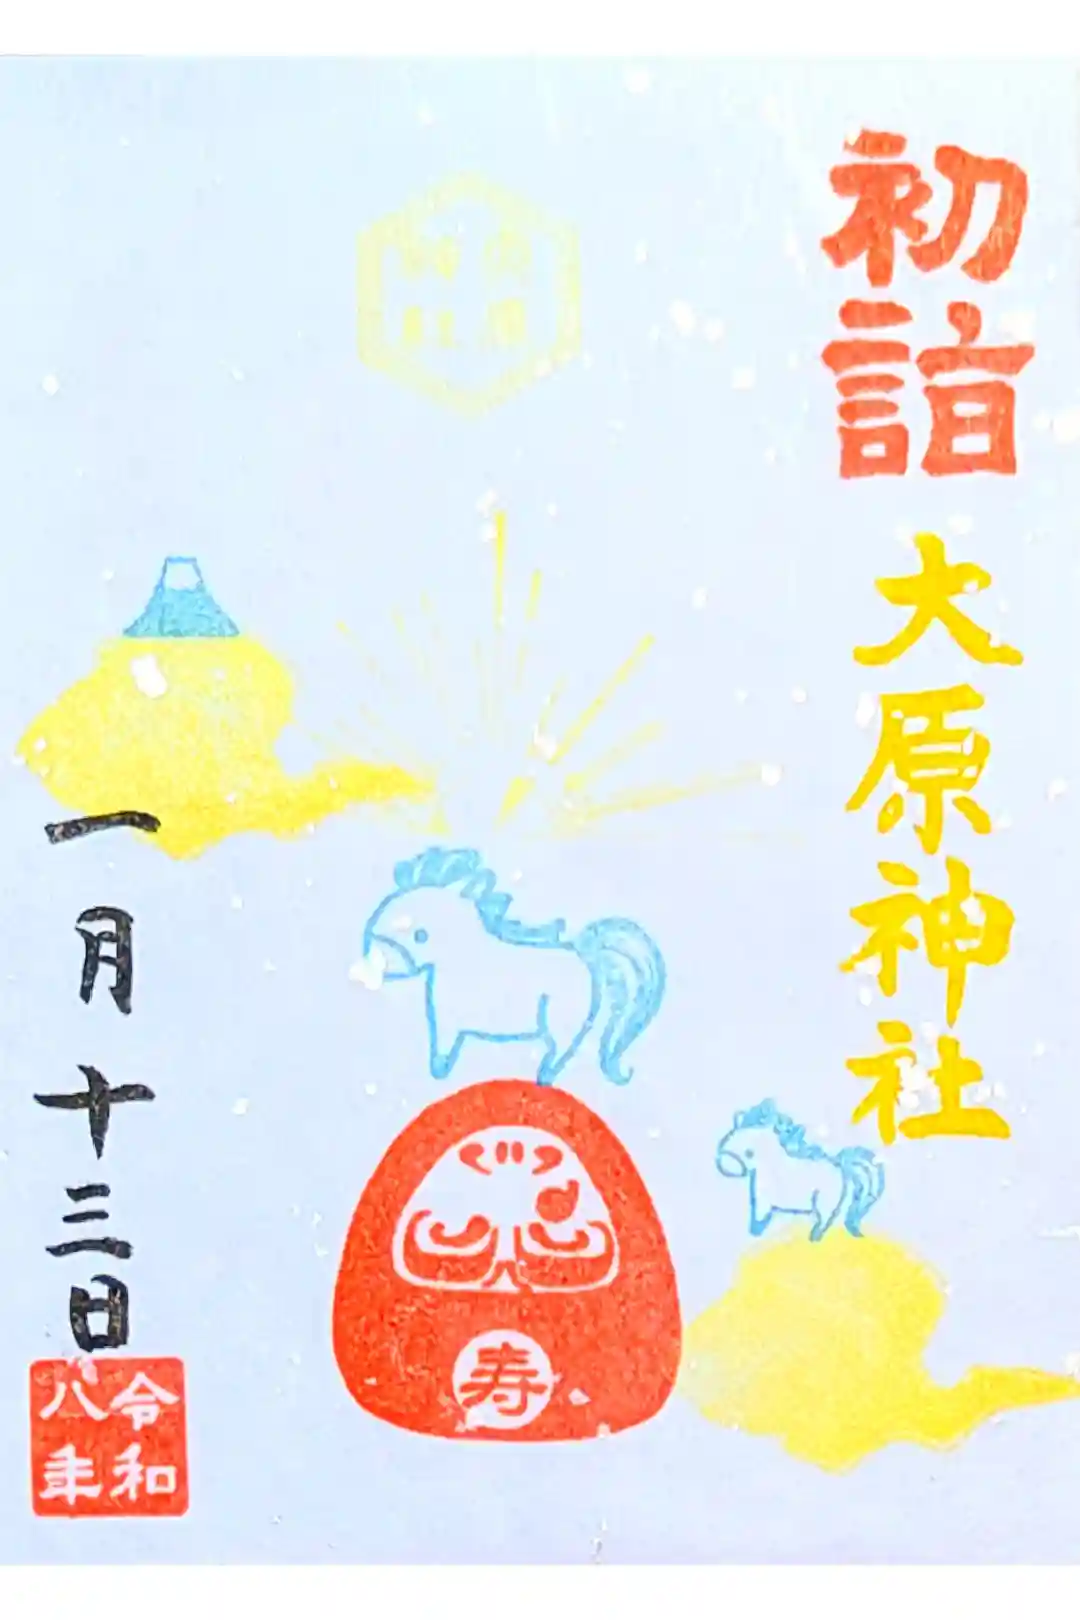 初詣
大原神社
寿
一月十三日
令和
八年